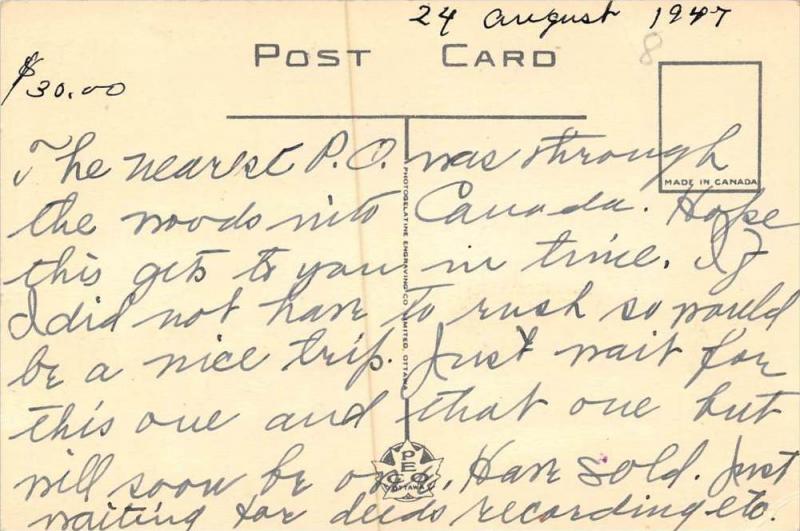 24 august 1947
8
POST CARD
$30.00
MADE IN CANADA
PHOTOGELATINE ENGRAVING CO. LIMITED, OTTAWA
The nearest P.O. was through
the woods into Canada. Hope
this gets to you in time. If
I did not have to rush so would
be a nice trip. Just wait for
this one and that one but
will soon be over. Have sold. Just
waiting for deeds recording etc.
PECO
OTTAWA